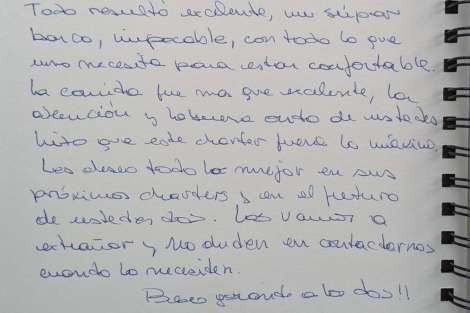 Todo resultó excelente, un súper
barco, impecable, con todo lo que
uno necesita para estar confortable.
La comida fue mas que excelente, la
atención y la buena onda de ustedes
hizo que este charter fuera lo máximo.
Les deseo todo lo mejor en sus
próximos charters y en el futuro
de ustedes dos. Los vamos a
extrañar y no duden en contactarnos
cuando lo necesiten.
Beso grande a los dos!!